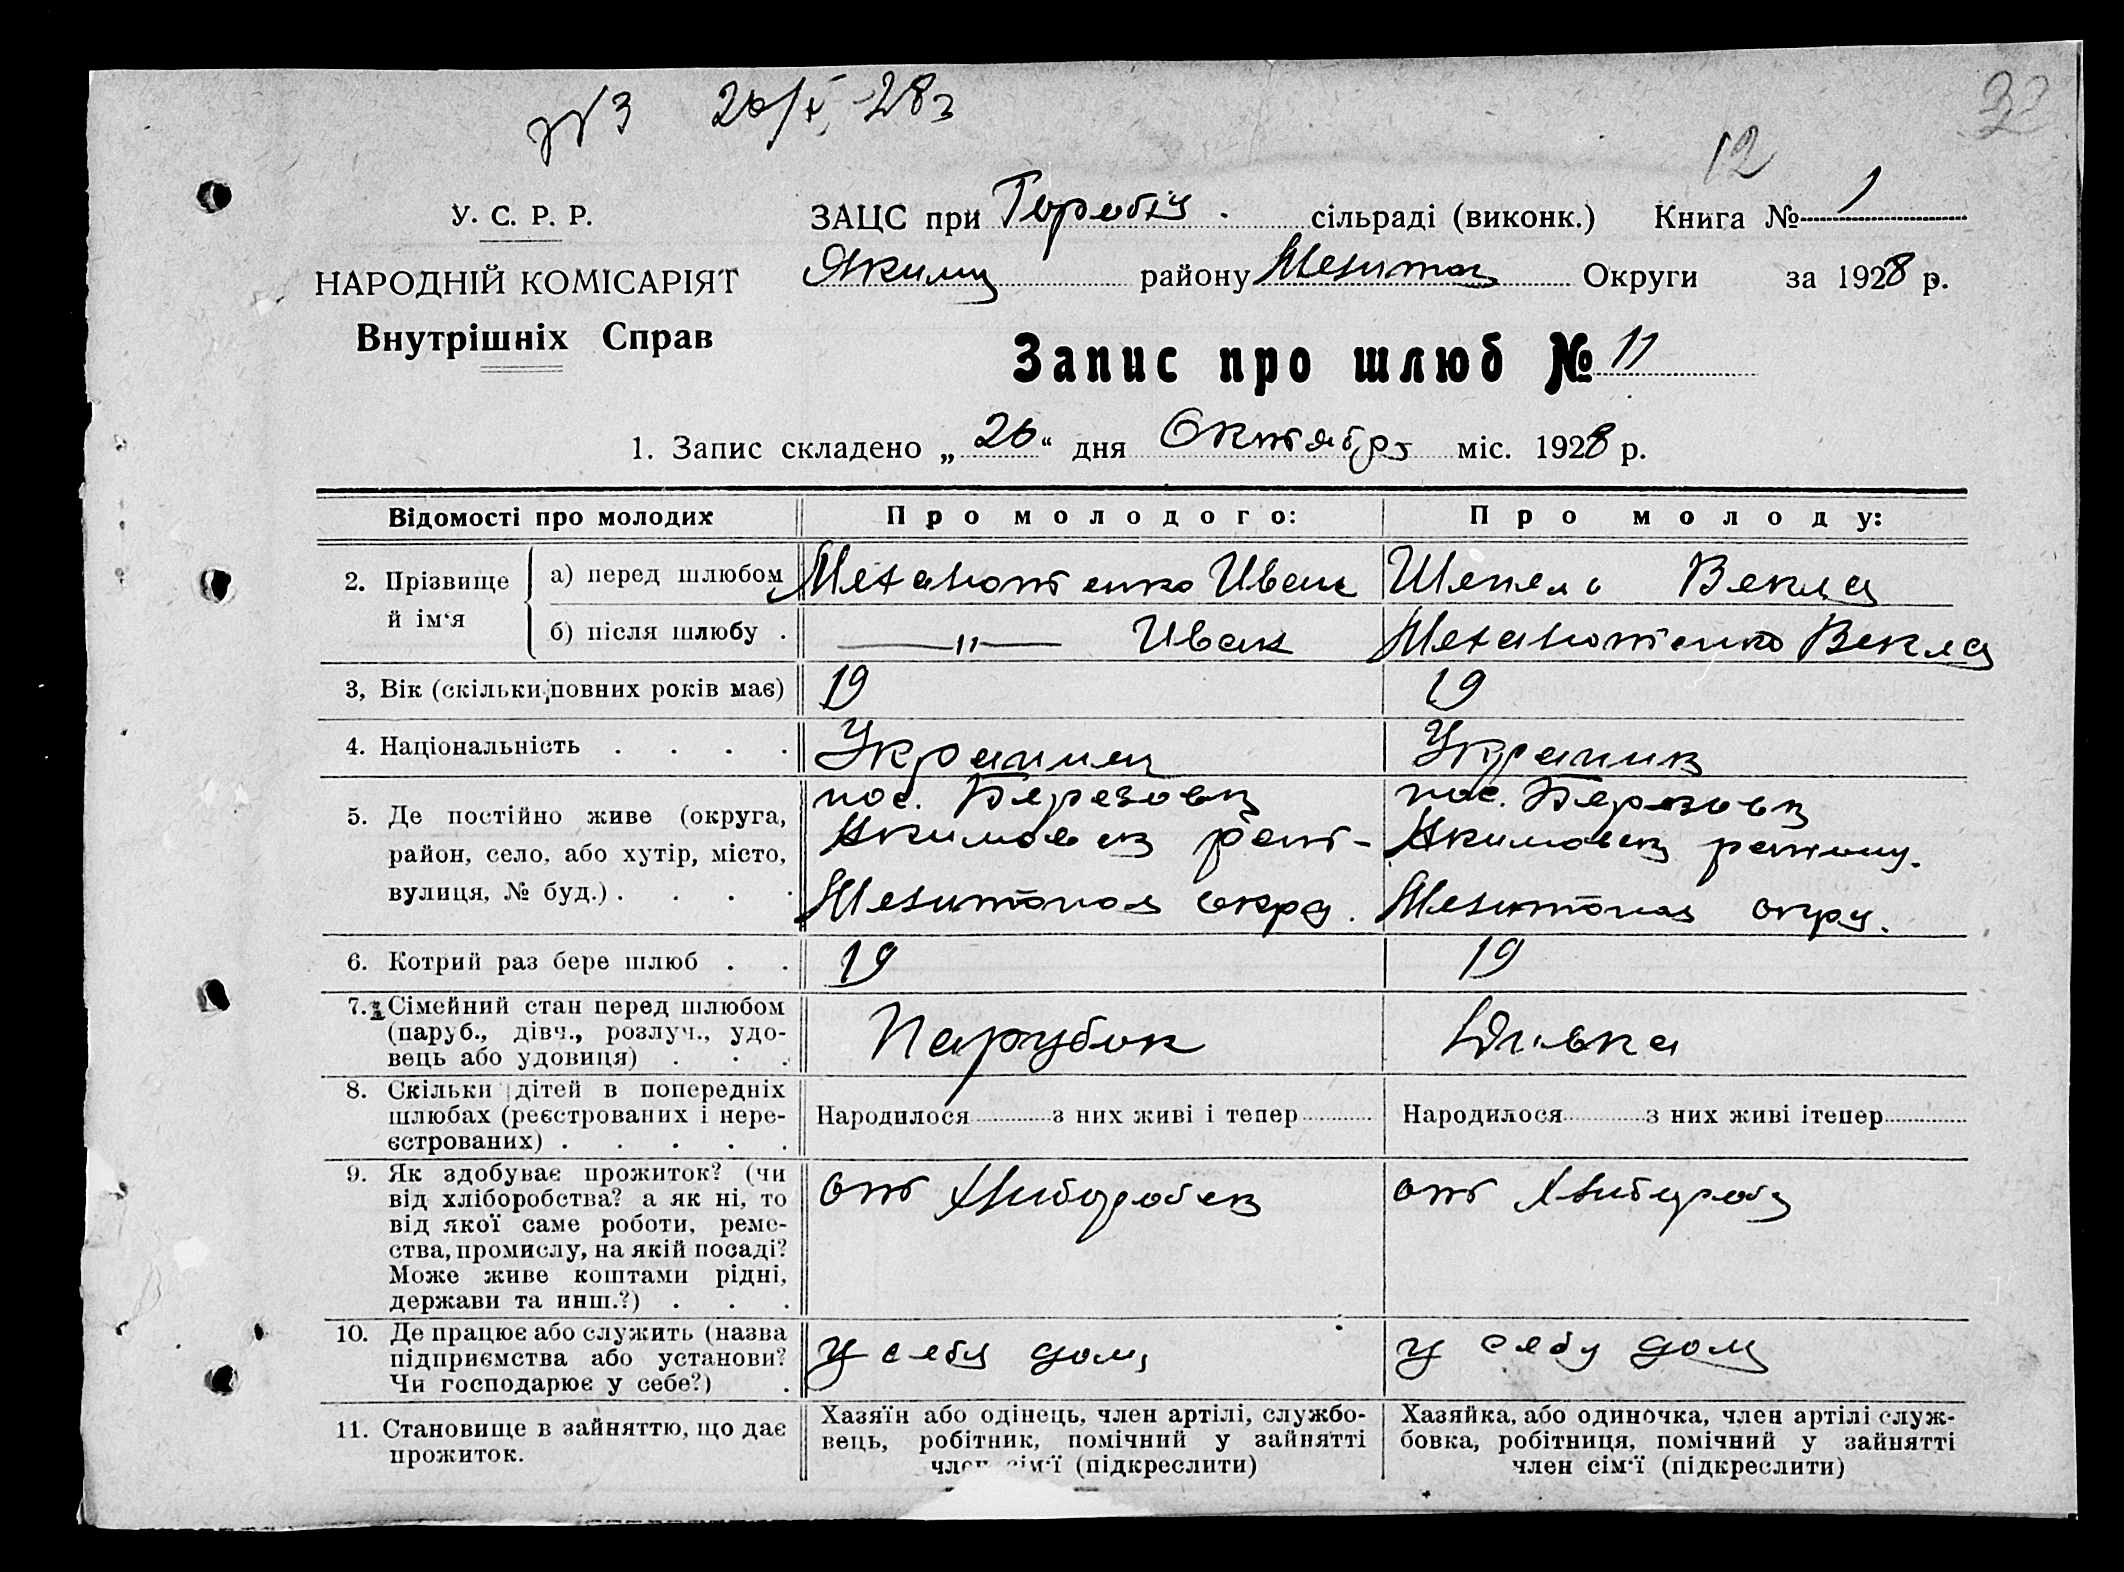 №3 26/X 28 г
32
12
У. С. Р. Р.
НАРОДНІЙ КОМІСАРІЯТ
Внутрішніх Справ
ЗАЦС при сільраді (виконк.) Книга № 1
Яким району Мелитоп Округи за 1928 р.
Запис про шлюб № 11
1. Запис складено „26“ дня Октября міс. 1928 р.
Відомості про молодих Про молодого: Про молоду:
2. Прізвище й ім‘я
а) перед шлюбом Иван Шепель Векла
б) після шлюбу . —"— Иван Векла
3, Вік (скільки повних років має) 19 19
4. Національність . . . . Украинец Украинк
5. Де постійно живе (округа, район, село, або хутір, місто, вулиця, № буд.) . . . .
пос. Березовк
Акимовск
Мелитопол окру.
пос. Березовк
Акимовск району.
Мелитопол окру.
6. Котрий раз бере шлюб . . 19 19
7. Сімейний стан перед шлюбом
(паруб., дівч., розлуч., удо-
вець або удовиця) . . .
Парубок Дивка
8. Скільки дітей в попередніх
шлюбах (реєстрованих і нере-
єстрованих) . . . . .
Народилося з них живі і тепер Народилося з них живі ітепер
9. Як здобуває прожиток? (чи
від хліборобства? а як ні, то
від якої саме роботи, реме-
ства, промислу, на якій посаді?
Може живе коштами рідні,
держави та инш.?) . . .
от от
10. Де працює або служить (назва
підприємства або установи?
Чи господарює у себе?) .
у себя дом у себя дом
11. Становище в зайняттю, що дає
прожиток.
Хазяїн або одінець, член артілі, службо-
вець, робітник, помічний у зайнятті
член сім‘ї (підкреслити)
Хазяйка, або одиночка, член артілі служ-
бовка, робітниця, помічний у зайнятті
член сім‘ї (підкреслити)